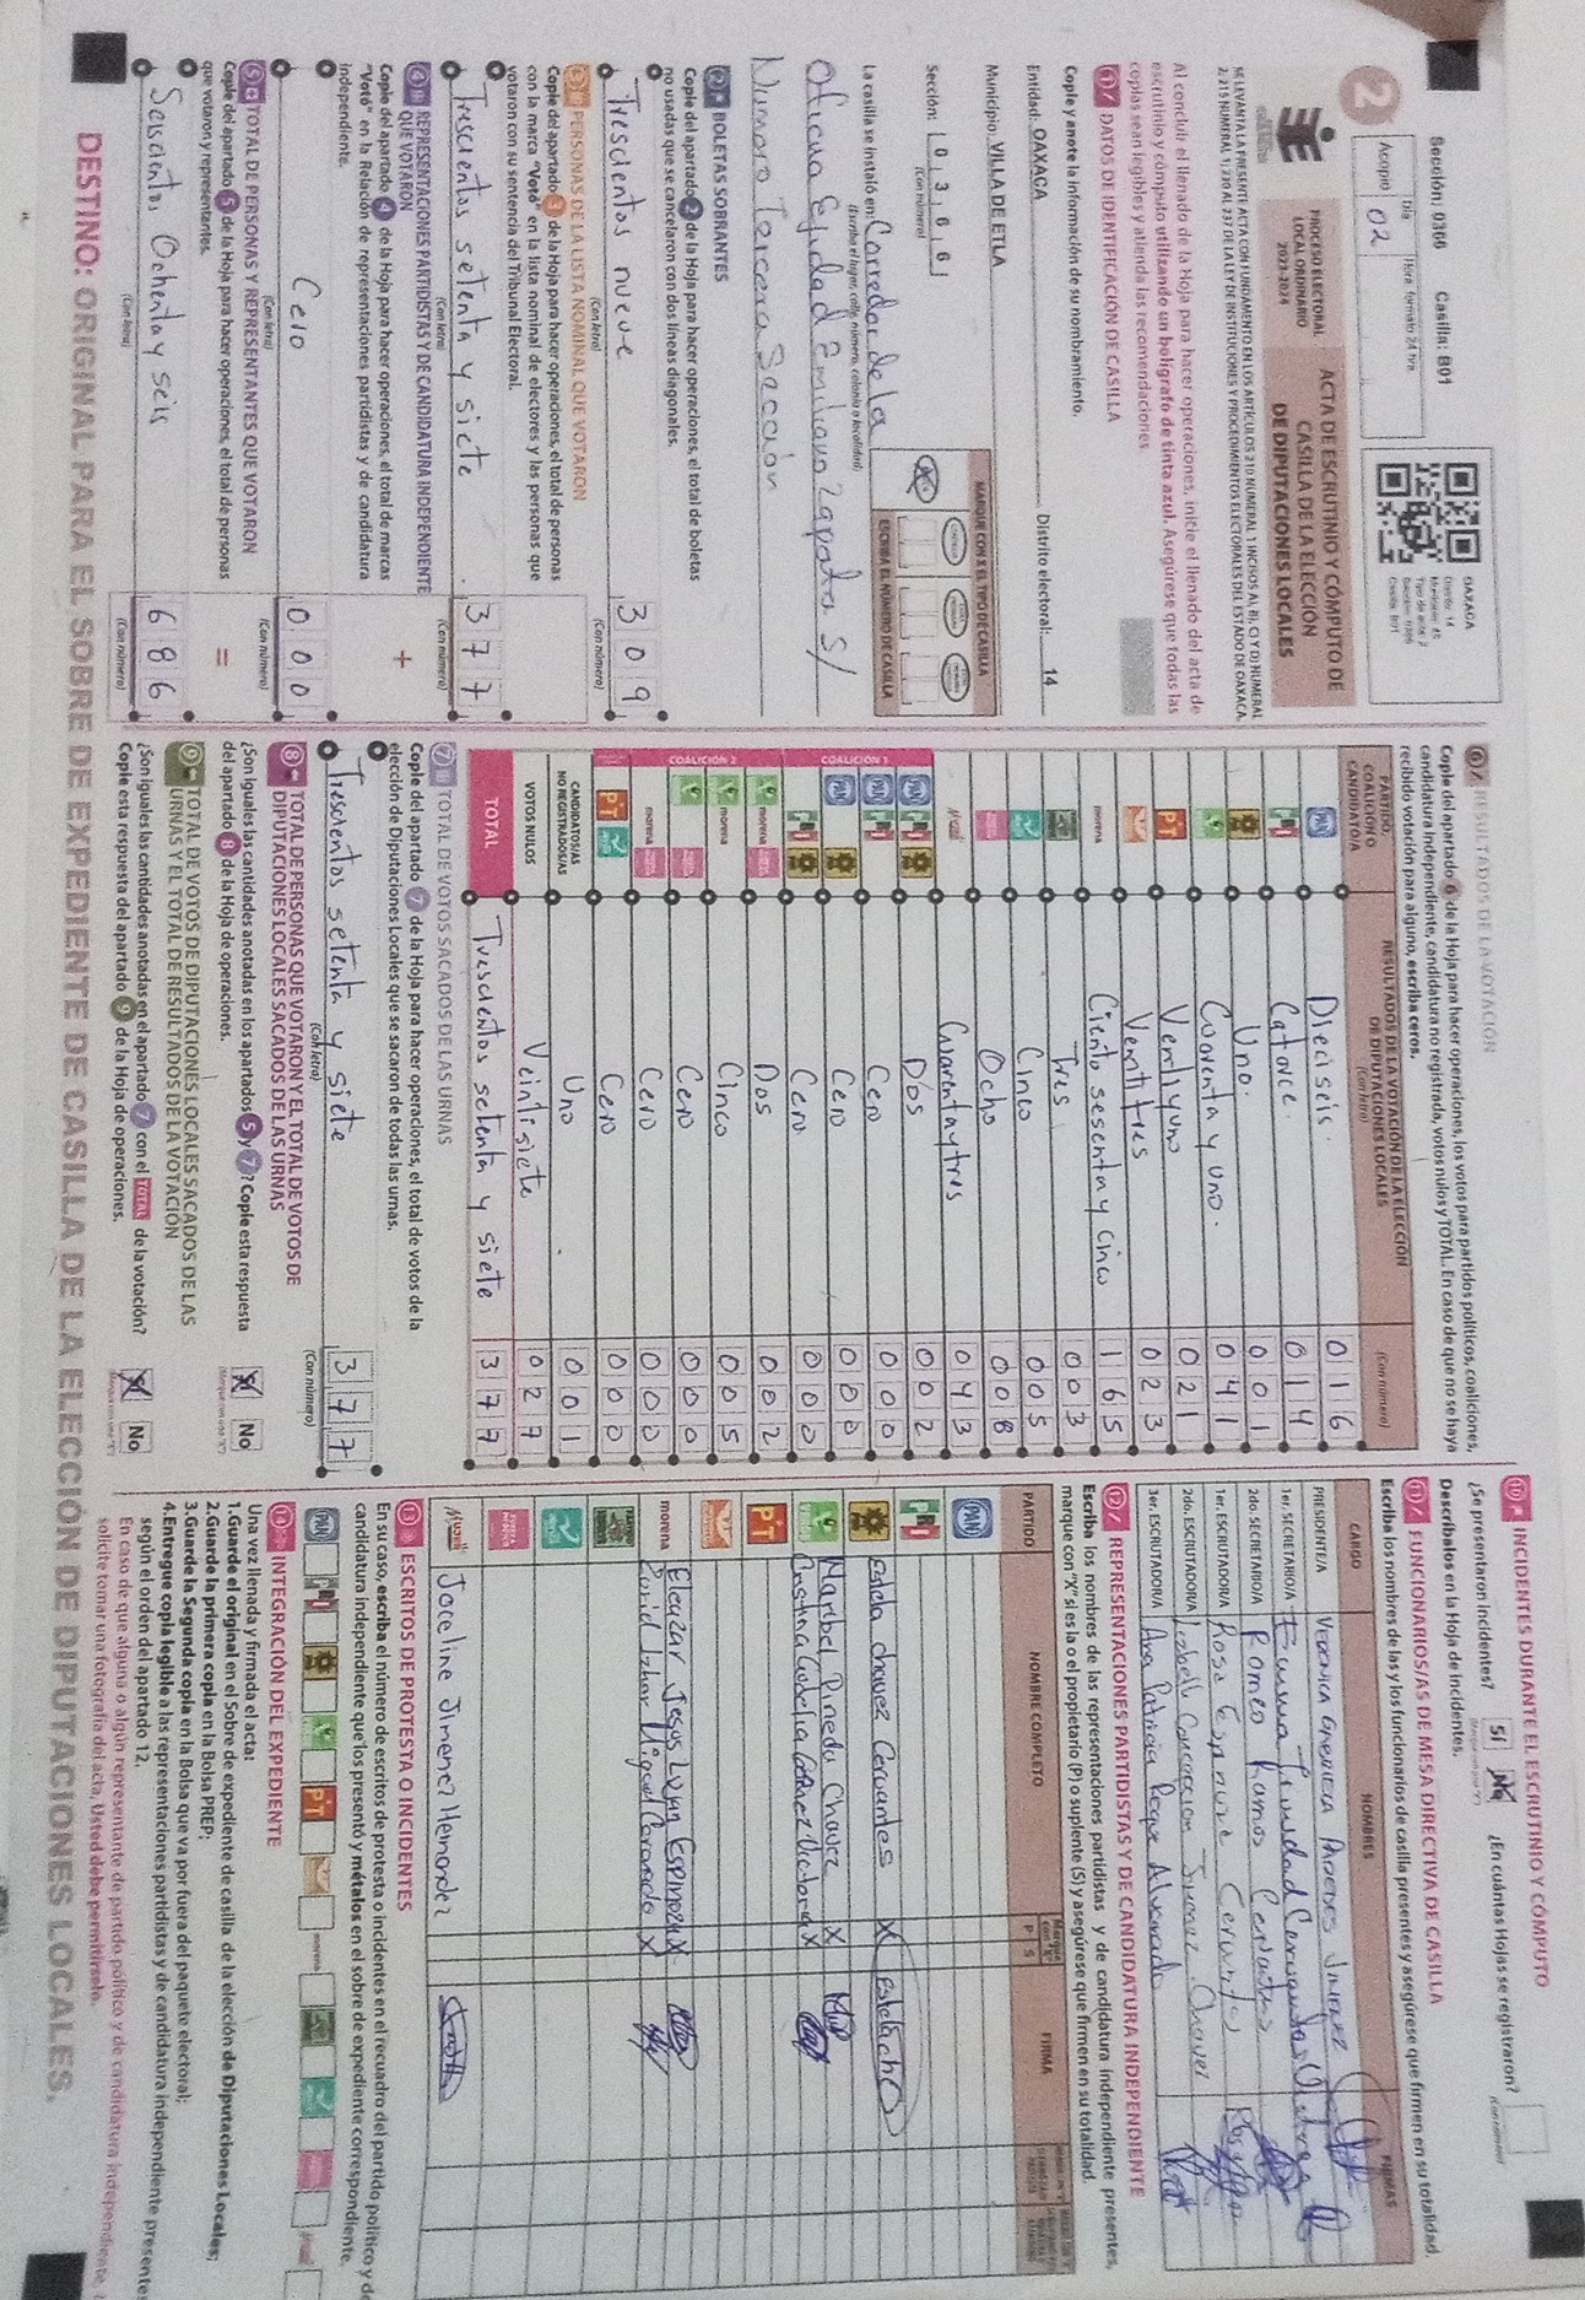 Sección: 0366 Casilla: B01
Acopio
Día
Hora formato 24 hrs
02
2
OAXACA
PROCESO ELECTORAL
LOCAL ORDINARIO
2023-2024
ACTA DE ESCRUTINIO Y CÓMPUTO DE
CASILLA DE LA ELECCIÓN
DE DIPUTACIONES LOCALES
SE LEVANTA LA PRESENTE ACTA CON FUNDAMENTO EN LOS ARTÍCULOS 210 NUMERAL 1 INCISOS A), B), C) Y D) NUMERAL
2; 215 NUMERAL 1; 230 AL 237 DE LA LEY DE INSTITUCIONES Y PROCEDIMIENTOS ELECTORALES DEL ESTADO DE OAXACA.
Al concluir el llenado de la Hoja para hacer operaciones, inicie el llenado del acta de
escrutinio y cómputo utilizando un bolígrafo de tinta azul. Asegúrese que todas las
copias sean legibles y atienda las recomendaciones
1 DATOS DE IDENTIFICACIÓN DE CASILLA
Copie y anote la información de su nombramiento.
Entidad: OAXACA Distrito electoral: 14
Municipio: VILLA DE ETLA
Sección: 0 3 6 6
(Con número)
MARQUE CON X EL TIPO DE CASILLA
ESCRIBA EL NÚMERO DE CASILLA
La casilla se instaló en: Corredor de la
(Escriba el lugar, calle, número, colonia o localidad)
Oficina Ejidal Emiliano Zapata S/
Numero Tercera Sección
2 BOLETAS SOBRANTES
Copie del apartado 2 de la Hoja para hacer operaciones, el total de boletas
no usadas que se cancelaron con dos líneas diagonales.
Trescientos nueve 3 0 9
(Con letra) (Con número)
3 PERSONAS DE LA LISTA NOMINAL QUE VOTARON
Copie del apartado 3 de la Hoja para hacer operaciones, el total de personas
con la marca "Votó" en la lista nominal de electores y las personas que
votaron con su sentencia del Tribunal Electoral.
Trescientos setenta y siete 3 7 7
(Con letra) (Con número)
4 REPRESENTACIONES PARTIDISTAS Y DE CANDIDATURA INDEPENDIENTE
QUE VOTARON
Copie del apartado 4 de la Hoja para hacer operaciones, el total de marcas
"Votó" en la Relación de representaciones partidistas y de candidatura
independiente. +
Cero 0 0 0
(Con letra) (Con número)
5 TOTAL DE PERSONAS Y REPRESENTANTES QUE VOTARON
Copie del apartado 5 de la Hoja para hacer operaciones, el total de personas
que votaron y representantes. =
Seiscientos Ochenta y seis 6 8 6
(Con letra) (Con número)
6 RESULTADOS DE LA VOTACIÓN
Copie del apartado 6 de la Hoja para hacer operaciones, los votos para partidos políticos, coaliciones,
candidatura independiente, candidatura no registrada, votos nulos y TOTAL. En caso de que no se haya
recibido votación para alguno, escriba ceros.
PARTIDO,
COALICIÓN O
CANDIDATO/A
RESULTADOS DE LA VOTACIÓN DE LA ELECCIÓN
DE DIPUTACIONES LOCALES
(Con letra)
(Con número)
PAN Dieciseis. 0 1 6
PRI Catorce. 0 1 4
Uno. 0 0 1
Cuarenta y uno. 0 4 1
PT Ventiyuno 0 2 1
Ventitres 0 2 3
morena Ciento sesenta y cinco 1 6 5
Tres 0 0 3
Cinco 0 0 5
Ocho 0 0 8
Cuarentaytres 0 4 3
COALICIÓN 1
PAN PRI Dos 0 0 2
PAN PRI Cero 0 0 0
PAN Cero 0 0 0
PRI Cero 0 0 0
COALICIÓN 2
morena Dos 0 0 2
morena Cinco 0 0 5
Cero 0 0 0
morena Cero 0 0 0
PT Cero 0 0 0
CANDIDATOS/AS
NO REGISTRADOS/AS Uno 0 0 1
VOTOS NULOS Veintisiete 0 2 7
TOTAL Trescientos setenta y siete 3 7 7
7 TOTAL DE VOTOS SACADOS DE LAS URNAS
Copie del apartado 7 de la Hoja para hacer operaciones, el total de votos de la
elección de Diputaciones Locales que se sacaron de todas las urnas.
Trescientos setenta y siete 3 7 7
(Con letra) (Con número)
8 TOTAL DE PERSONAS QUE VOTARON Y EL TOTAL DE VOTOS DE
DIPUTACIONES LOCALES SACADOS DE LAS URNAS
¿Son iguales las cantidades anotadas en los apartados 5 y 7? Copie esta respuesta
del apartado 8 de la Hoja de operaciones. X No
9 TOTAL DE VOTOS DE DIPUTACIONES LOCALES SACADOS DE LAS
URNAS Y EL TOTAL DE RESULTADOS DE LA VOTACIÓN
¿Son iguales las cantidades anotadas en el apartado 7 con el TOTAL de la votación?
Copie esta respuesta del apartado 9 de la Hoja de operaciones. X No
10 INCIDENTES DURANTE EL ESCRUTINIO Y CÓMPUTO
¿Se presentaron incidentes? Sí No ¿En cuántas Hojas se registraron?
Descríbalos en la Hoja de Incidentes.
11 FUNCIONARIOS/AS DE MESA DIRECTIVA DE CASILLA
Escriba los nombres de las y los funcionarios de casilla presentes y asegúrese que firmen en su totalidad.
CARGO NOMBRES FIRMAS
PRESIDENTE/A VERONICA
1er. SECRETARIO/A
2do. SECRETARIO/A Romeo Ramos
1er. ESCRUTADOR/A Rosa
2do. ESCRUTADOR/A
3er. ESCRUTADOR/A Ana Patricia Roque Alvarado
12 REPRESENTACIONES PARTIDISTAS Y DE CANDIDATURA INDEPENDIENTE
Escriba los nombres de las representaciones partidistas y de candidatura independiente presentes,
marque con "X" si es la o el propietario (P) o suplente (S) y asegúrese que firmen en su totalidad.
PARTIDO NOMBRE COMPLETO P S FIRMA
PAN
PRI
Estela chavez Cervantes X
Maribel Pineda Chavez X
Cristina X
PT
morena Eleuzar Jesus X
X
Joceline Jimenez Hernandez
13 ESCRITOS DE PROTESTA O INCIDENTES
En su caso, escriba el número de escritos de protesta o incidentes en el recuadro del partido político y de
candidatura independiente que los presentó y métalos en el sobre de expediente correspondiente.
PAN PRI PT morena
14 INTEGRACIÓN DEL EXPEDIENTE
Una vez llenada y firmada el acta:
1.Guarde el original en el Sobre de expediente de casilla de la elección de Diputaciones Locales;
2.Guarde la primera copia en la Bolsa PREP;
3.Guarde la Segunda copia en la Bolsa que va por fuera del paquete electoral;
4.Entregue copia legible a las representaciones partidistas y de candidatura independiente presentes
según el orden del apartado 12.
En caso de que alguna o algún representante de partido político y de candidatura independiente
solicite tomar una fotografía del acta, Usted debe permitírselo.
DESTINO: ORIGINAL PARA EL SOBRE DE EXPEDIENTE DE CASILLA DE LA ELECCIÓN DE DIPUTACIONES LOCALES.